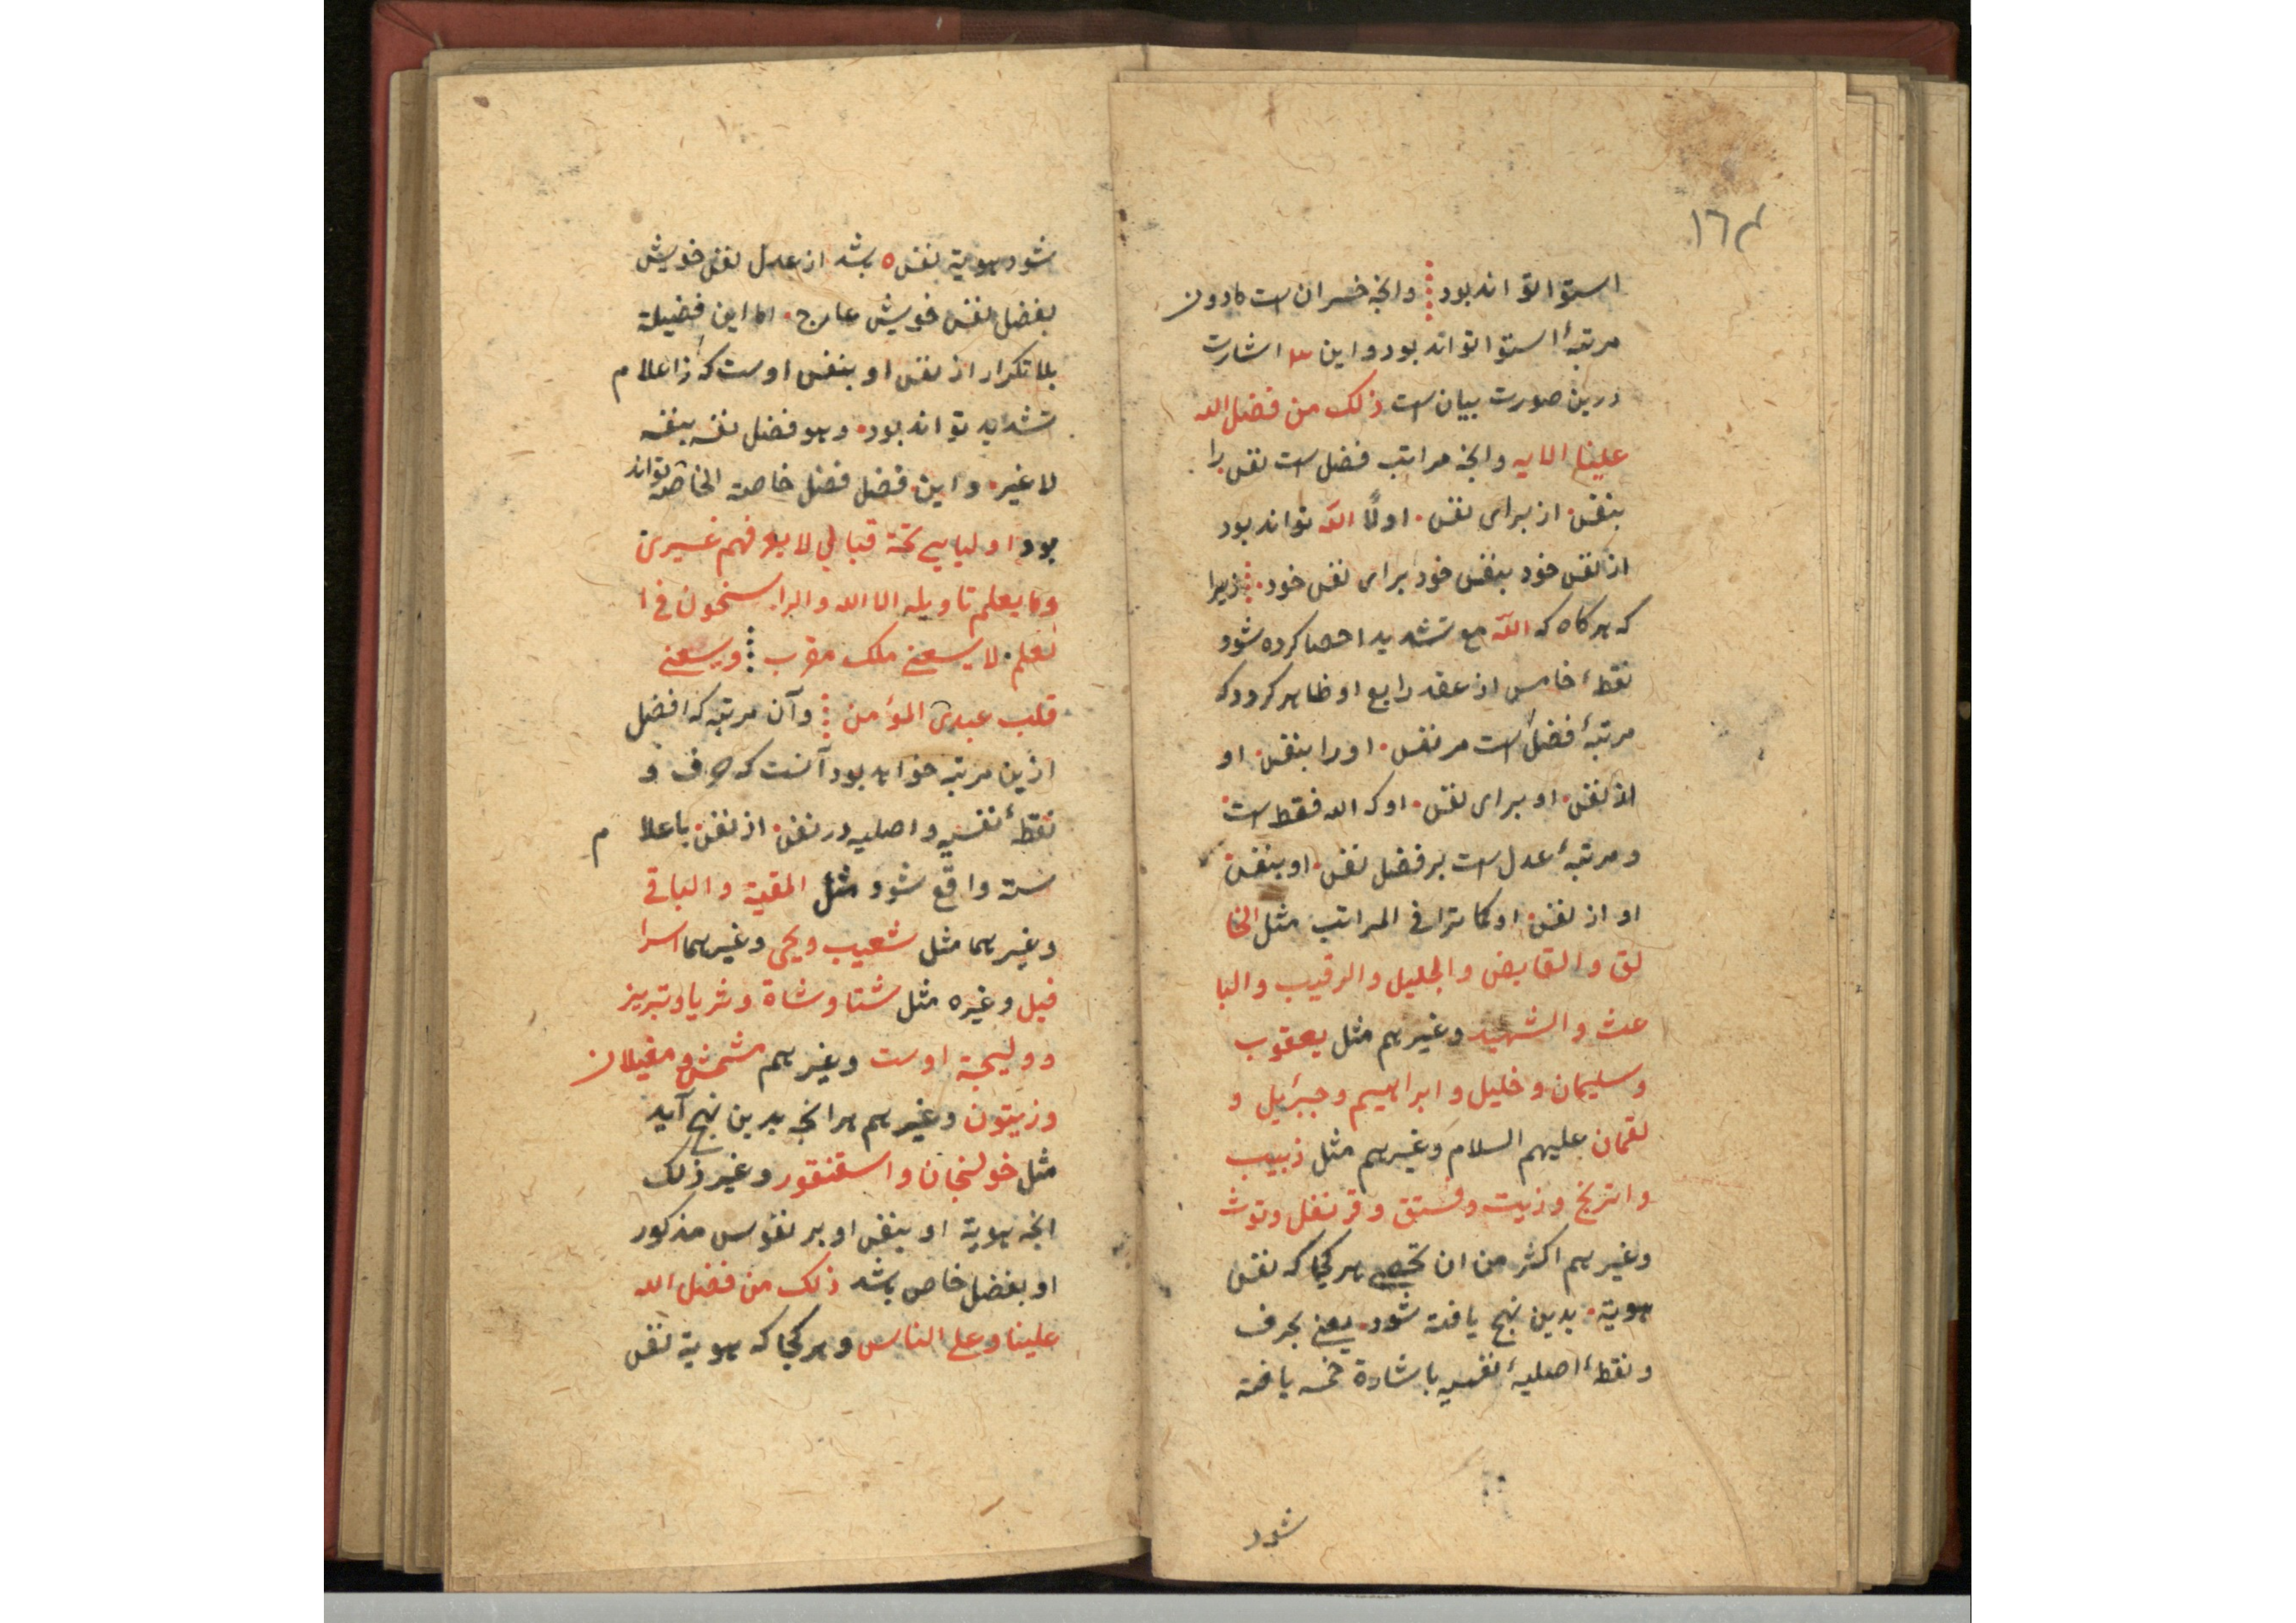 ١٦٤
استوا تواند بود ⁞ وانچه خسران است مادون
مرتبهٔ استوا تواند بود و این ٣ اشارت
درین صورت بیان است ذلک من فضل الله
علینا الایه وانچه مراتب فضل است نفس را
بنفس از برای نفس اولًا الله تواند بود
از نفس خود بنفس خود برای نفس خود زیرا
که هر کاه که اللّه مع تشدید احصا کرده شود
نقطهٔ خامس از عقد رابع او ظاهر کردد که
مرتبهٔ فضل است مر نفس او را بنفس او
از نفس او برای نفس او که الله فقط است
و مرتبهٔ عدل است بر فضل نفس او بنفس
او از نفس او کما ترا فی المراتب مثل الخا
لق و القابض و الجلیل و الرقیب و البا
عث و الشهید و غیر هم مثل یعقوب
و سلیمان و خلیل و ابراهیم و جبرئیل و
لقمان علیهم السلام و غیر هم مثل زبیب
و اترنج و زیت و فستق و قرنفل و توث
و غیر هم اکثر من ان تحصی هر کجا که نفس
هویة بدین نهج یافته شود یعنی بحرف
و نقطهٔ اصلیهٔ نفسیه باشارة خمسه یافته
شود
شود هویة نفس ٥ باشد از عدل نفس خویش
بفضل نفس خویش عارج اما این فضیلة
بلا تکرار از نفس او بنفس اوست که ز اعلام
تشدید تواند بود و هو فضل نفسه بنفسه
لا غیر و این فضل فضل خاصة الخاصه تواند
بود اولیایی تحت قبابی لا یعرفهم غیری
و ما یعلم تاویله الا الله و الراسخون فی ا
لعلم لا یسعنی ملک مقرب ⁞ و یسعنی
قلب عبدی المؤمن ⁞ و آن مرتبه که افضل
ازین مرتبه خواهد بود آنست که حرف و
نقطهٔ نفسیه و اصلیه در نفس از نفس باعلام
سته واقع شود مثل المقیت و الباقی
و غیر هما مثل شعیب و یحیی و غیر هما اسرا
فیل و غیره مثل شتا و شاة و ثریا و تبریز
و ولیجة اوست و غیر هم مشمش و مغیلان
و زیتون و غیر هم هر انچه بدین نهج آید
مثل خولنجان و اسقنقور و غیر ذلک
انچه هویة او بنفس او بر نفوس مذکور
او بفضل خاص باشد ذلک من فضل الله
علینا و علی الناس و هر کجا که هویة نفس